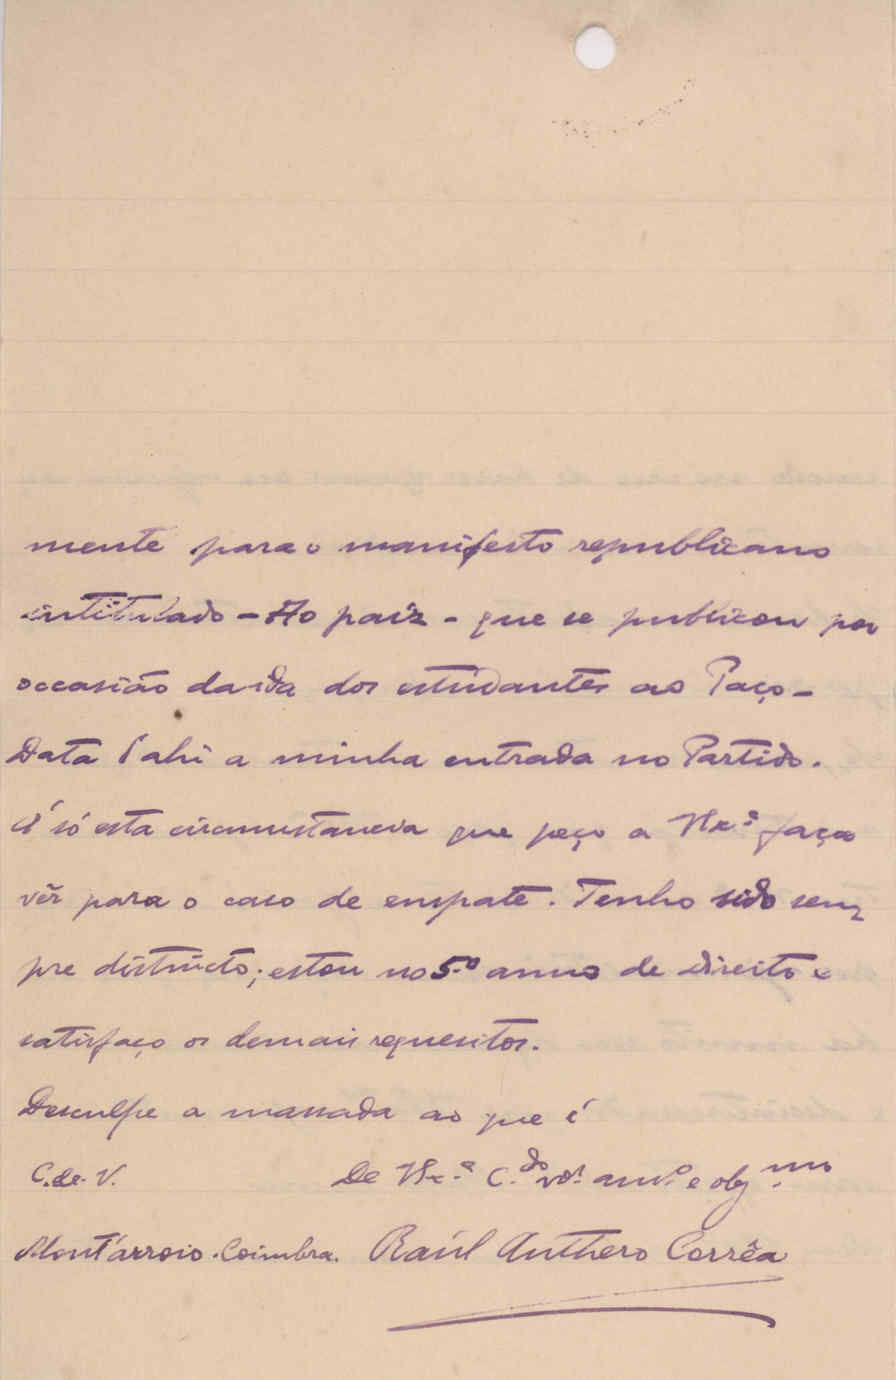 mente para o manifesto republicano
intitulado - Ao paiz - que se publicou por
occasião da ida dos estudantes ao Paço -
Data d'ahi a minha entrada no Partido.
É só esta circumstancia que peço a V. Ex.ª faça
vêr para o caso de empate. Tenho sido sem
pre distincto; estou no 5.º anno de direito e
satisfaço os demais requesitos.
Desculpe a massada ao que é
C. de V. De V. Ex.ª C.do am.º e obg.mo
Mont'arroio. Coimbra. Raúl Anthero Corrêa